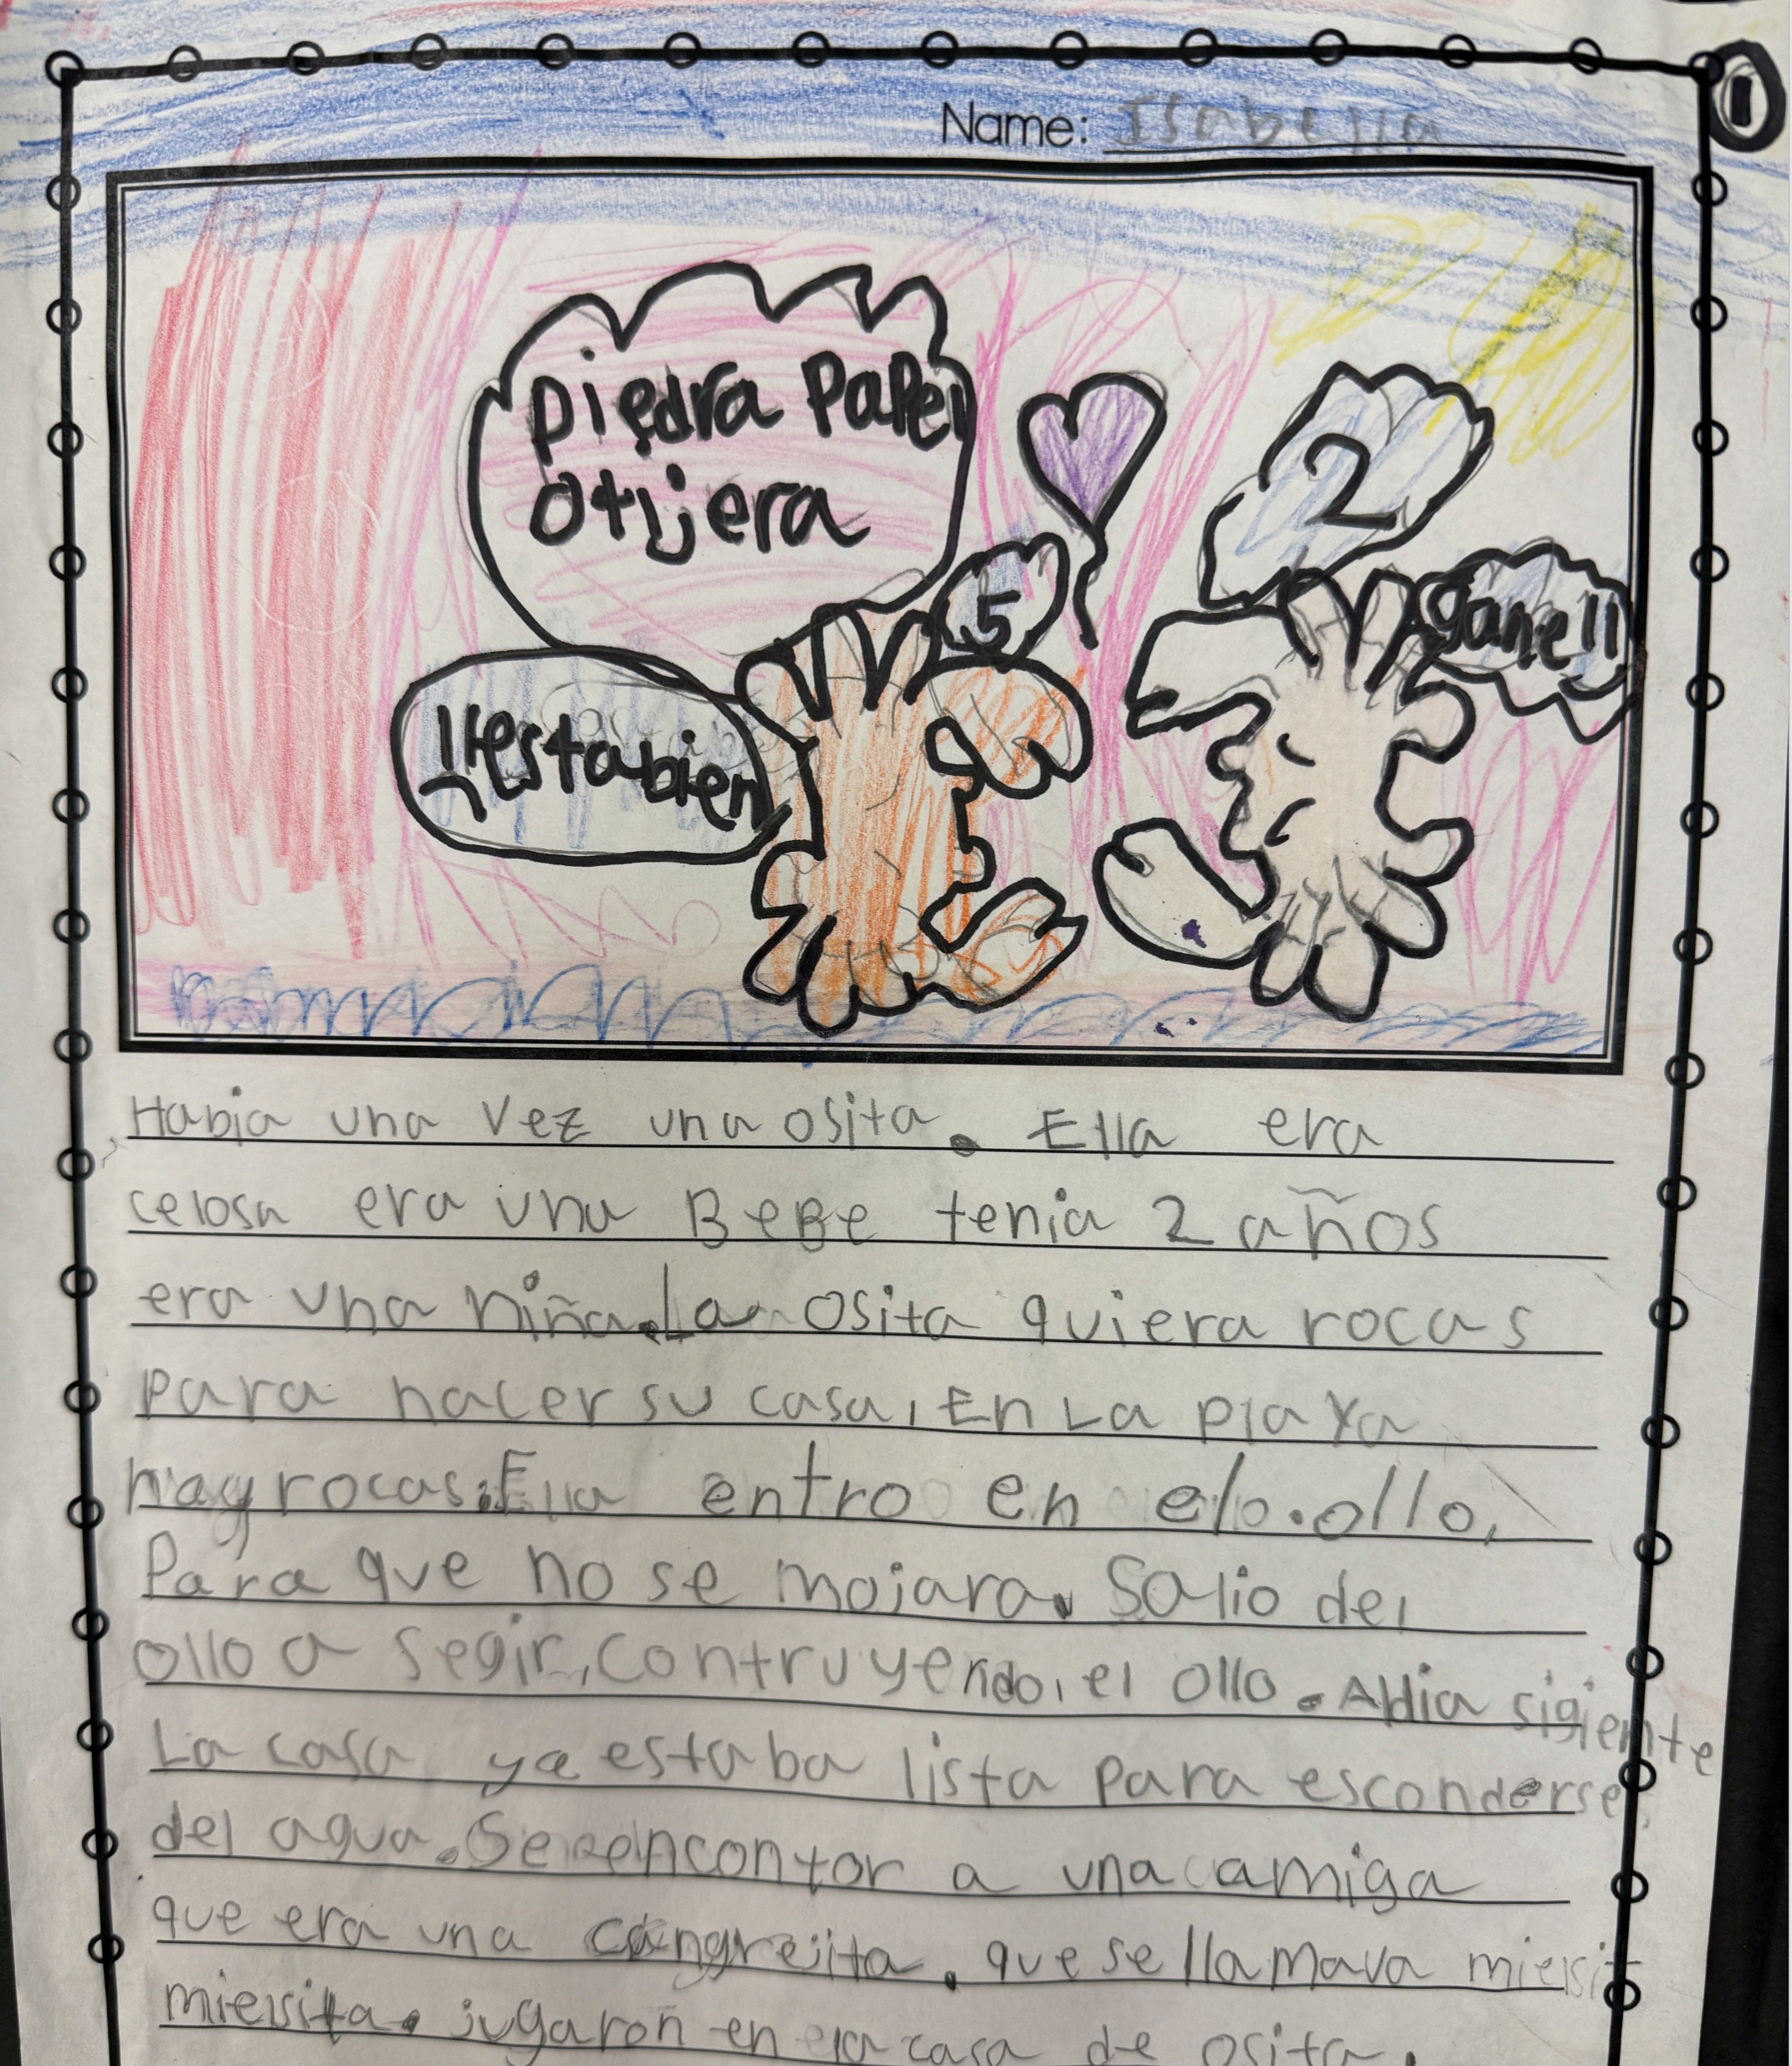 1
Name: Isabella
piedra Papel
o tijera
2
5
gane!!
estabien
Habia una vez una osita. Ella era
celosa era una BeBe tenia 2 años
era una niña. La osita quiera rocas
para hacer su casa, En La playa
hay rocas. Ella entro en el ollo,
Para que no se mojara. Salio del
ollo a segir, contruyendo, el ollo. Aldia sigiente
La casa ya estaba lista para esconderse
del agua. Se encontor a una amiga
que era una cangrejita. que se llamava
miersita. jugaron en la casa de osita.